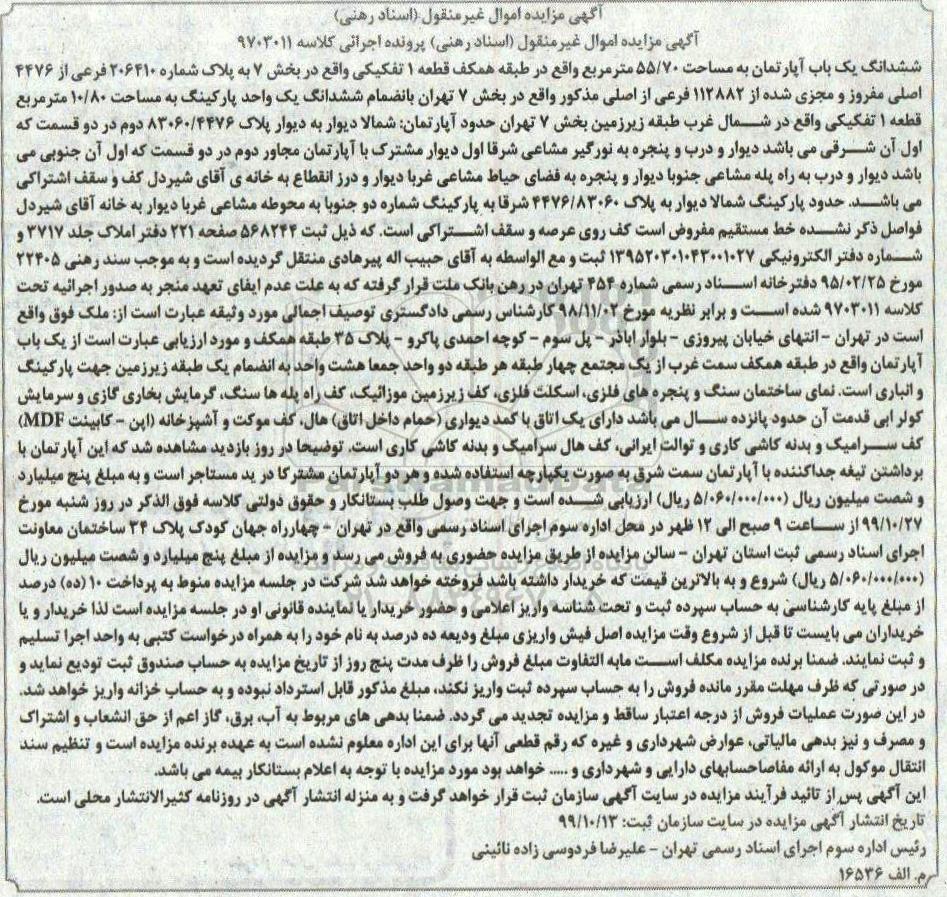 آگهی مزایده اموال غیرمنقول (اسناد رهنی)
آگهی مزایده اموال غیرمنقول (اسناد رهنی) پرونده اجرائی کلاسه ۹۷۰۳۰۱۱
ششدانگ یک باب آپارتمان به مساحت ۵۵/۷۰ مترمربع واقع در طبقه همکف قطعه ۱ تفکیکی واقع در بخش ۷ به پلاک شماره ۲۰۶۴۱۰ فرعی از ۴۴۷۶
اصلی مفروز و مجزی شده از ۱۱۲۸۸۲ فرعی از اصلی مذکور واقع در بخش ۷ تهران بانضمام ششدانگ یک واحد پارکینگ به مساحت ۱۰/۸۰ مترمربع
قطعه ۱ تفکیکی واقع در شمال غرب طبقه زیرزمین بخش ۷ تهران حدود آپارتمان: شمالا دیوار به دیوار پلاک ۸۳۰۶۰/۴۴۷۶ دوم در دو قسمت که
اول آن شرقی می باشد دیوار و درب و پنجره به نورگیر مشاعی شرقا اول دیوار مشترک با آپارتمان مجاور دوم در دو قسمت که اول آن جنوبی می
باشد دیوار و درب به راه پله مشاعی جنوبا دیوار و پنجره به فضای حیاط مشاعی غربا دیوار و درز انقطاع به خانه ی آقای شیردل کف و سقف اشتراکی
می باشد. حدود پارکینگ شمالا دیوار به پلاک ۴۴۷۶/۸۳۰۶۰ شرقا به پارکینگ شماره دو جنوبا به محوطه مشاعی غربا دیوار به خانه آقای شیردل
فواصل ذکر نشده خط مستقیم مفروض است کف روی عرصه و سقف اشتراکی است. که ذیل ثبت ۵۶۸۲۴۴ صفحه ۲۲۱ دفتر املاک جلد ۳۷۱۷ و
شماره دفتر الکترونیکی ۱۳۹۵۲۰۳۰۱۰۴۳۰۰۱۰۲۷ ثبت و مع الواسطه به آقای حبیب اله پیرهادی منتقل گردیده است و به موجب سند رهنی ۲۲۴۰۵
مورخ ۹۵/۰۲/۲۵ دفترخانه اسناد رسمی شماره ۴۵۴ تهران در رهن بانک ملت قرار گرفته که به علت عدم ایفای تعهد منجر به صدور اجرائیه تحت
کلاسه ۹۷۰۳۰۱۱ شده است و برابر نظریه مورخ ۹۸/۱۱/۰۲ کارشناس رسمی دادگستری توصیف اجمالی مورد وثیقه عبارت است از: ملک فوق واقع
است در تهران - انتهای خیابان پیروزی - بلوار اباذر - پل سوم - کوچه احمدی پاکرو - پلاک ۳۵ طبقه همکف و مورد ارزیابی عبارت است از یک باب
آپارتمان واقع در طبقه همکف سمت غرب از یک مجتمع چهار طبقه هر طبقه دو واحد جمعا هشت واحد به انضمام یک طبقه زیرزمین جهت پارکینگ
و انباری است. نمای ساختمان سنگ و پنجره های فلزی، اسکلت فلزی، کف زیرزمین موزائیک، کف راه پله ها سنگ، گرمایش بخاری گازی و سرمایش
کولر ابی قدمت آن حدود پانزده سال می باشد دارای یک اتاق با کمد دیواری (حمام داخل اتاق) هال، کف موکت و آشپزخانه (اپن - کابینت MDF)
کف سرامیک و بدنه کاشی کاری و توالت ایرانی، کف هال سرامیک و بدنه کاشی کاری است. توضیحا در روز بازدید مشاهده شد که این آپارتمان با
برداشتن تیغه جداکننده با آپارتمان سمت شرق به صورت یکپارچه استفاده شده و هر دو آپارتمان مشترکا در ید مستاجر است و به مبلغ پنج میلیارد
و شصت میلیون ریال (۵/۰۶۰/۰۰۰/۰۰۰ ریال) ارزیابی شده است و جهت وصول طلب بستانکار و حقوق دولتی کلاسه فوق الذکر در روز شنبه مورخ
۹۹/۱۰/۲۷ از ساعت ۹ صبح الی ۱۲ ظهر در محل اداره سوم اجرای اسناد رسمی واقع در تهران - چهارراه جهان کودک پلاک ۳۴ ساختمان معاونت
اجرای اسناد رسمی ثبت استان تهران - سالن مزایده از طریق مزایده حضوری به فروش می رسد و مزایده از مبلغ پنج میلیارد و شصت میلیون ریال
(۵/۰۶۰/۰۰۰/۰۰۰ ریال) شروع و به بالاترین قیمت که خریدار داشته باشد فروخته خواهد شد شرکت در جلسه مزایده منوط به پرداخت ۱۰ (ده) درصد
از مبلغ پایه کارشناسی به حساب سپرده ثبت و تحت شناسه واریز اعلامی و حضور خریدار یا نماینده قانونی او در جلسه مزایده است لذا خریدار و یا
خریداران می بایست تا قبل از شروع وقت مزایده اصل فیش واریزی مبلغ ودیعه ده درصد به نام خود را به همراه درخواست کتبی به واحد اجرا تسلیم
و ثبت نمایند. ضمنا برنده مزایده مکلف است مابه التفاوت مبلغ فروش را ظرف مدت پنج روز از تاریخ مزایده به حساب صندوق ثبت تودیع نماید و
در صورتی که ظرف مهلت مقرر مانده فروش را به حساب سپرده ثبت واریز نکند، مبلغ مذکور قابل استرداد نبوده و به حساب خزانه واریز خواهد شد.
در این صورت عملیات فروش از درجه اعتبار ساقط و مزایده تجدید می گردد. ضمنا بدهی های مربوط به آب، برق، گاز اعم از حق انشعاب و اشتراک
و مصرف و نیز بدهی مالیاتی، عوارض شهرداری و غیره که رقم قطعی آنها برای این اداره معلوم نشده است به عهده برنده مزایده است و تنظیم سند
انتقال موکول به ارائه مفاصاحسابهای دارایی و شهرداری و ..... خواهد بود مورد مزایده با توجه به اعلام بستانکار بیمه می باشد.
این آگهی پس از تائید فرآیند مزایده در سایت آگهی سازمان ثبت قرار خواهد گرفت و به منزله انتشار آگهی در روزنامه کثیرالانتشار محلی است.
تاریخ انتشار آگهی مزایده در سایت سازمان ثبت: ۹۹/۱۰/۱۳
رئیس اداره سوم اجرای اسناد رسمی تهران - علیرضا فردوسی زاده نائینی
م. الف ۱۶۵۳۶